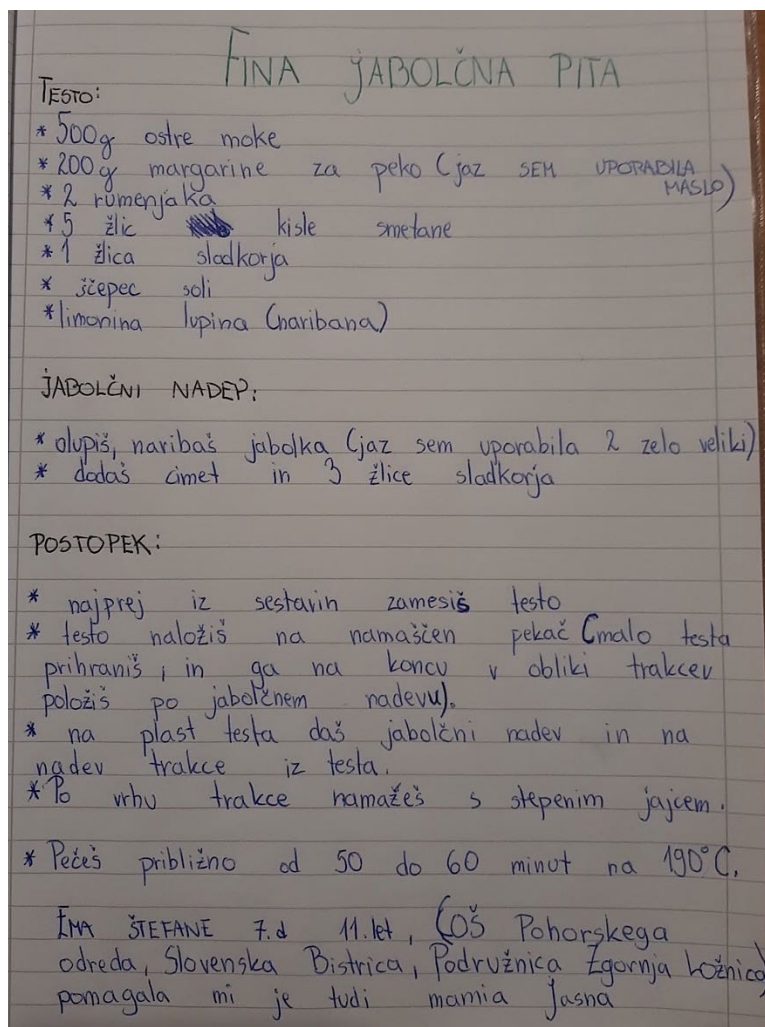 FINA JABOLČNA PITA
TESTO:
* 500g ostre moke
* 200g margarine za peko (jaz SEM UPORABILA
MASLO)
* 2 rumenjaka
* 5 žlic kisle smetane
* 1 žlica sladkorja
* ščepec soli
* limonina lupina (naribana)
JABOLČNI NADEP:
* olupiš, naribaš jabolka (jaz sem uporabila 2 zelo veliki)
* dodaš cimet in 3 žlice sladkorja
POSTOPEK:
* najprej iz sestavin zamesiš testo
* testo naložiš na namaščen pekač (malo testa
prihraniš, in ga na koncu v obliki trakcev
položiš po jabolčnem nadevu).
* na plast testa daš jabolčni nadev in na
nadev trakce iz testa.
* Po vrhu trakce namažeš s stepenim jajcem.
* Pečeš približno od 50 do 60 minut na 190°C.
EMA ŠTEFANE 7.d 11.let, (OŠ Pohorskega
odreda, Slovenska Bistrica, Podružnica Zgornja Ložnica)
pomagala mi je tudi mamia Jasna